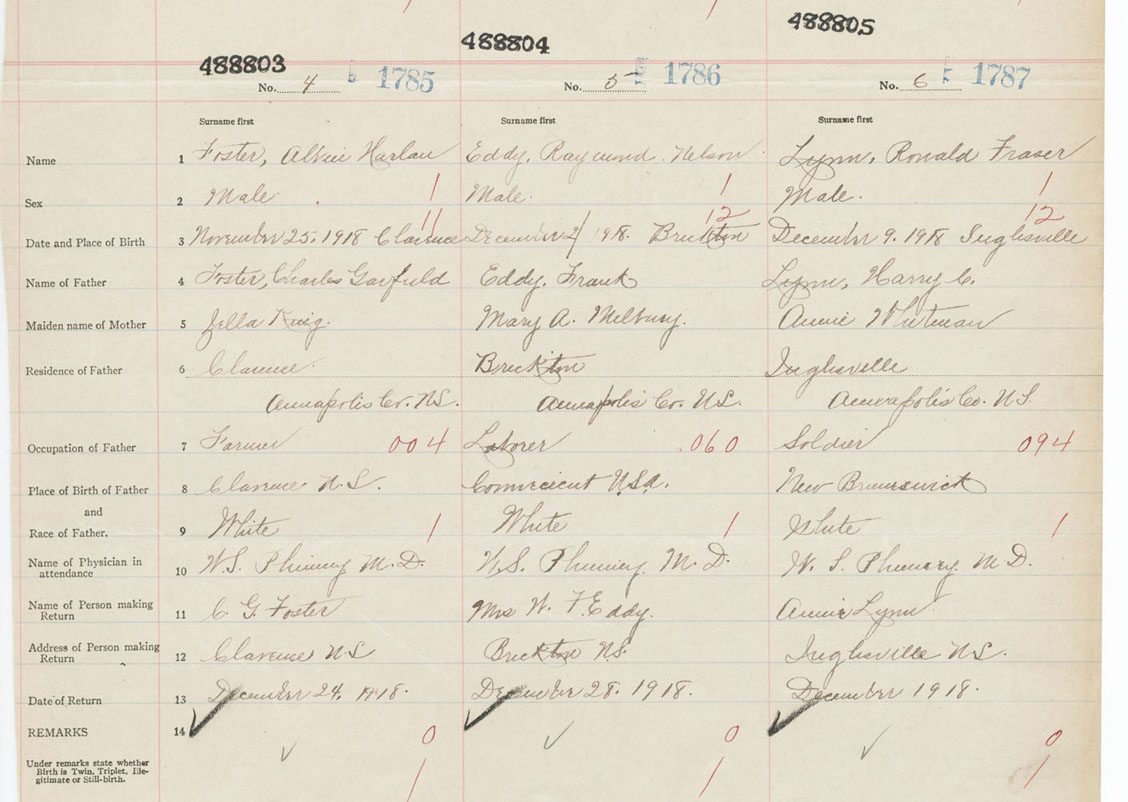 488803 488804 488805
No. 4 1785 No. 5 1786 No. 6 1787
Surname first Surname first Surname first
Name 1 Foster, Harlan Eddy, Raymond Nelson Lynn, Ronald Fraser
Sex 2 Male 1 Male. 1 Male. 1
11 12 12
Date and Place of Birth 3 November 25, 1918 Clarence December 1918. Brickton December 9. 1918 Inglisville
Name of Father 4 Foster, Charles Garfield Eddy, Frank Lynn, Harry C.
Maiden name of Mother 5 Mary A. Annie Whitman
Residence of Father 6 Clarence Brickton Inglisville
Annapolis Co. N.S. Annapolis Co. N.S. Annapolis Co. N.S
Occupation of Father 7 Farmer 004 Laborer 060 Soldier 094
Place of Birth of Father 8 Clarence N.S. U.S.A. New Brunswick
and
Race of Father. 9 White 1 White 1 White 1
Name of Physician in
attendance 10 W.S. Phinney M.D. W.S. Phinney M.D. W. S. Phinney M D.
Name of Person making
Return 11 C. G. Foster Mrs W. F. Eddy. Annie Lynn
Address of Person making
Return 12 Clarence N S Brickton N.S. Inglisville N.S.
Date of Return 13 December 24, 1918. December 28. 1918. December 1918.
REMARKS 14 0 0 0
Under remarks state whether
Birth is Twin, Triplet, Ille-
gitimate or Still-birth. 1 1 1